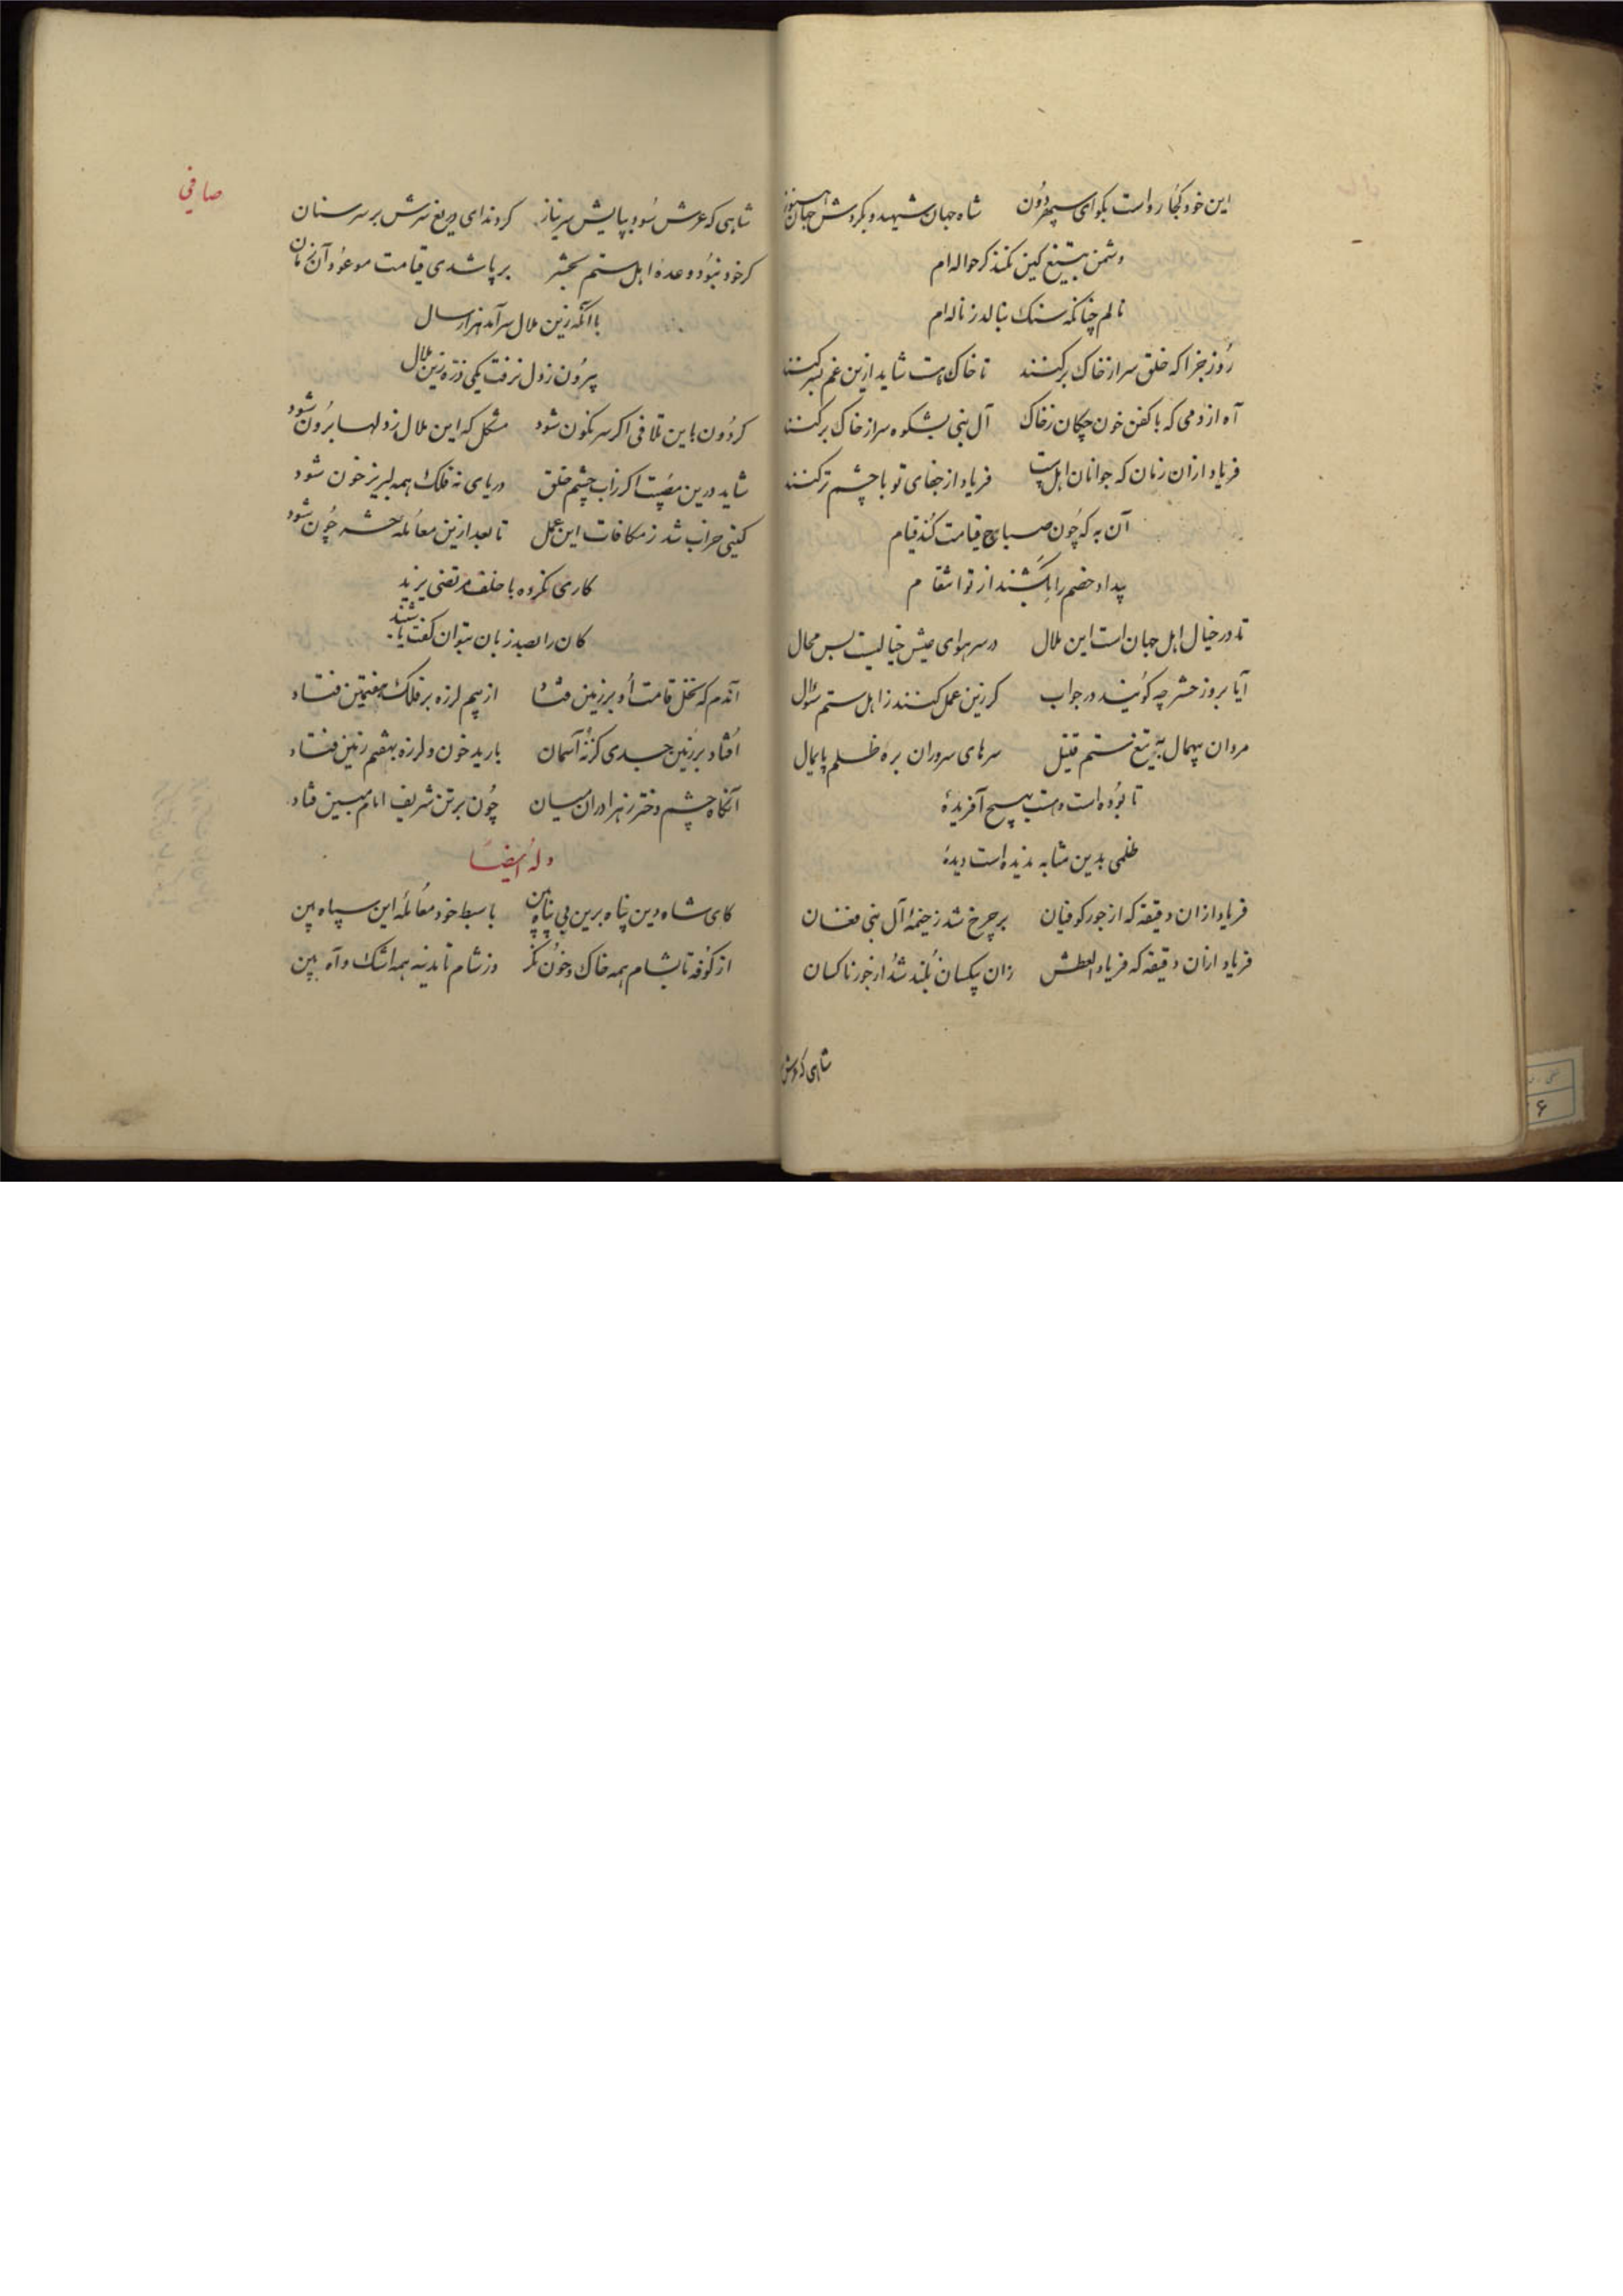 این خود کجا رواست بکو ای سپهر دون شاه جهان شهید و بکردش جهان هنوز
دشمن بتیغ کین نکند کر حواله ام
نالم چنانکه سنک بنالد ز ناله ام
روز جزا که خلق سر از خاک برکنند تا خاک هست شاید ازین غم بسر کنند
آه از دمی که با کفن خون چکان ز خاک آل نبی بشکوه سر از خاک برکنند
فریاد ازان زمان که جوانان اهل بیت فریاد از جفای تو با چشم تر کنند
آن به که چون صباح قیامت کند قیام
بیداد خصم را بکشند از تو انتقام
تا در خیال اهل جهان است این ملال در سر هوای عیش خیالیست بس محال
آیا بروز حشر چه کویند در جواب کر زین عمل کنند ز اهل ستم سؤال
مردان بیهمال به تیغ ستم قتیل سرهای سروران بره ظلم پایمال
تا بوده است و هست هیچ آفریدهٔ
ظلمی بدین مثابه ندیده است دیدهٔ
فریاد ازان دقیقه که از جور کوفیان بر چرخ شد ز خیمهٔ آل نبی فغان
فریاد ازان دقیقه که فریاد العطش زان بیکسان بلند شد از جور ناکسان
شاهی که عرش
صافی
شاهی که عرش سود بپایش سر نیاز کردند ای دریغ سرش بر سر سنان
کر خود نبود وعدهٔ اهل ستم بحشر بر پا شدی قیامت موعود آن زمان
با آنکه زین ملال سر آمد هزار سال
بیرون ز دل نرفت یکی ذره زین ملال
کردون باین تلافی اکر سرنکون شود مشکل که این ملال ز دلها برون شود
شاید درین مصیبت اکر ز آب چشم خلق دریای نه فلک همه لبریز خون شود
کیتی خراب شد ز مکافات این عمل تا بعد ازین معامله حشر چون شود
کاری نکرده با خلف مرتضی یزید
کان را بصد زبان بتوان کفت یا شنید
آندم که نخل قامت او بر زمین فتاد از بیم لرزه بر فلک هفتمین فتاد
افتاد بر زمین جسدی کز نه آسمان بارید خون و لرزه بهفتم زمین فتاد
آنکاه چشم دختر زهرا دران میان چون بر تن شریف امام مبین فتاد
وله ایضا
کای شاه دین پناه برین بی پناه بین با سبط خود معامله این سپاه بین
از کوفه تا بشام همه خاک و خون نکر وز شام تا مدینه همه اشک و آه بین